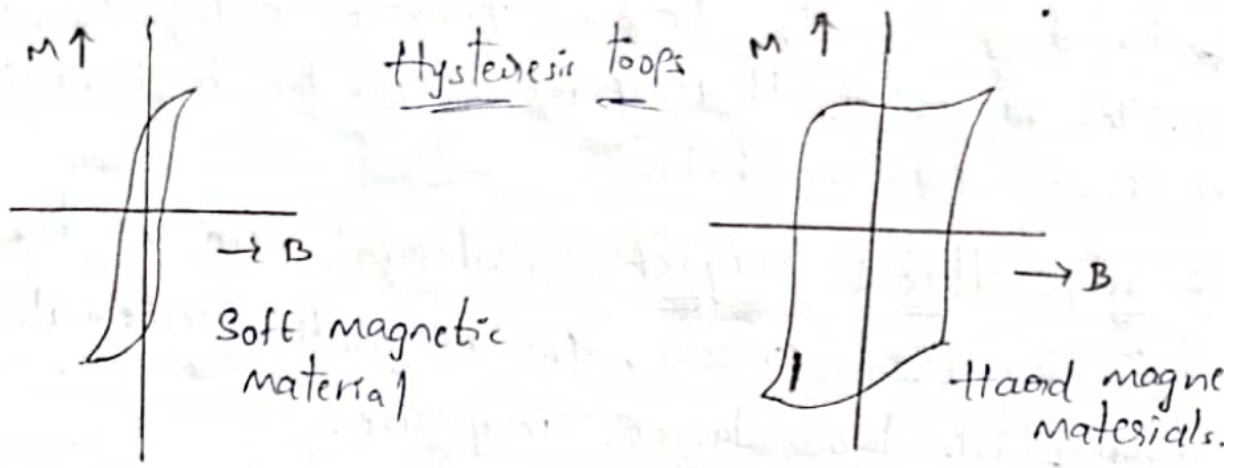 M ↑
Hysteresis loops
M ↑
→ B
→ B
Soft magnetic
material
Hard magne
materials.